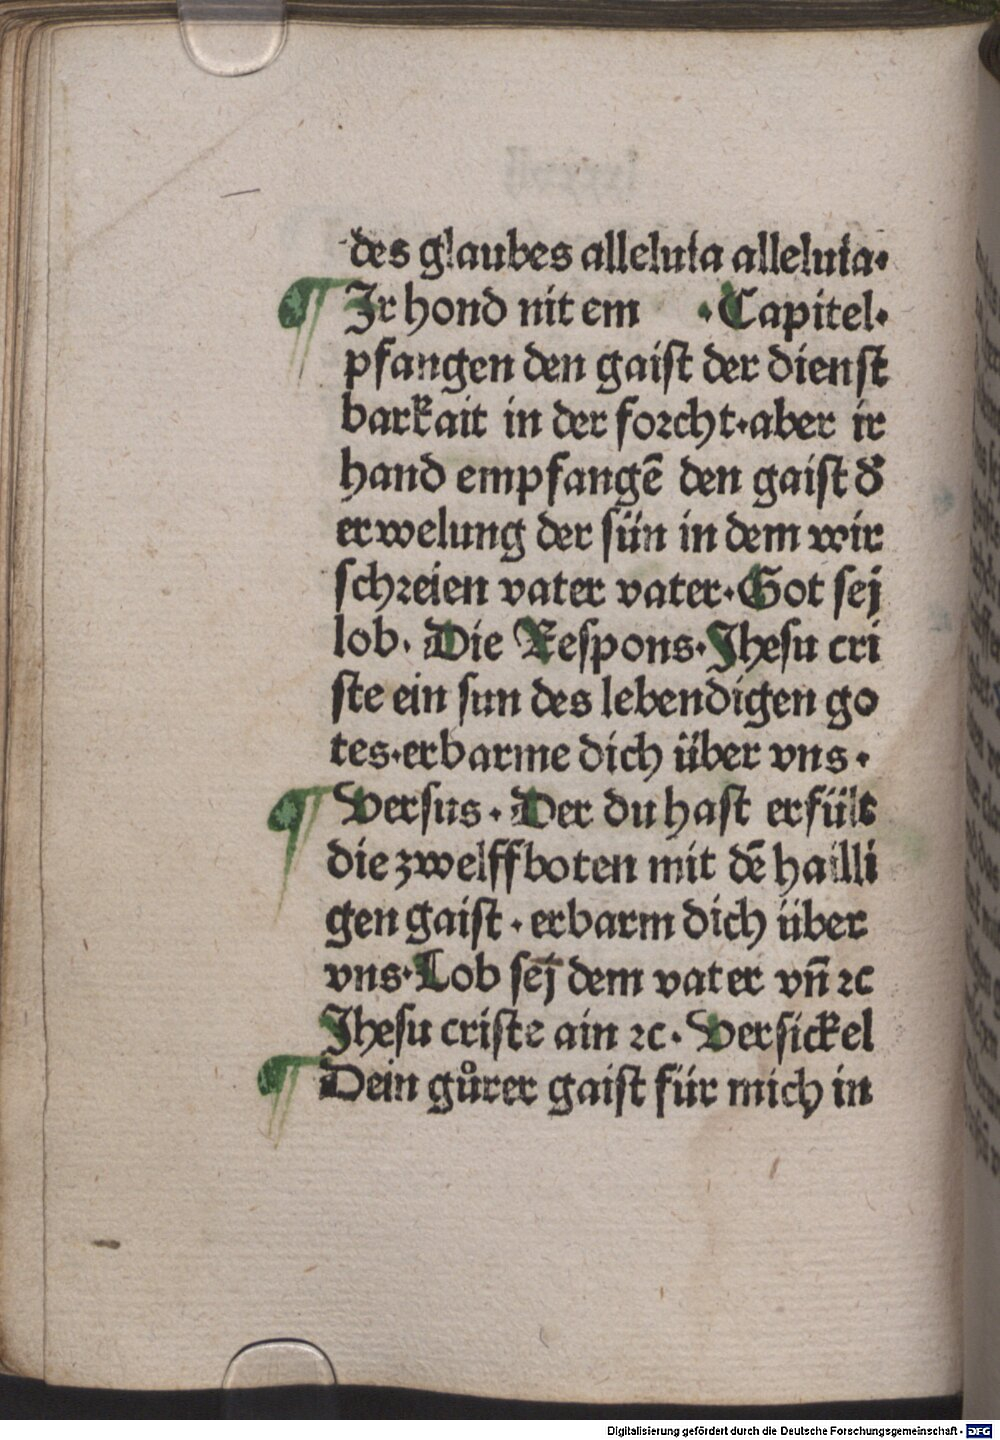 des glaubes alleluia alleluia·
¶ Jr hond nit em ·Capitel·
pfangen den gaiſt der dienſt
barkait in der forcht·aber ir
hand empfangē den gaiſt đ
erwelung der ſün in dem wir
ſchreien vater vater·Got ſej
lob· Die Reſpons·Jheſu cri
ſte ein ſun des lebendigen go
tes·erbarme dich über vns·
¶ Verſus· Der du haſt erfült
die zwelffboten mit dē hailli
gen gaiſt·erbarm dich über
vns·Lob ſej dem vater vn̄ ⁊c
Jheſu criſte ain ⁊c· Verſickel
¶ Dein gůrer gaiſt für mich in
Digitalisierung gefördert durch die Deutsche Forschungsgemeinschaft - DFG